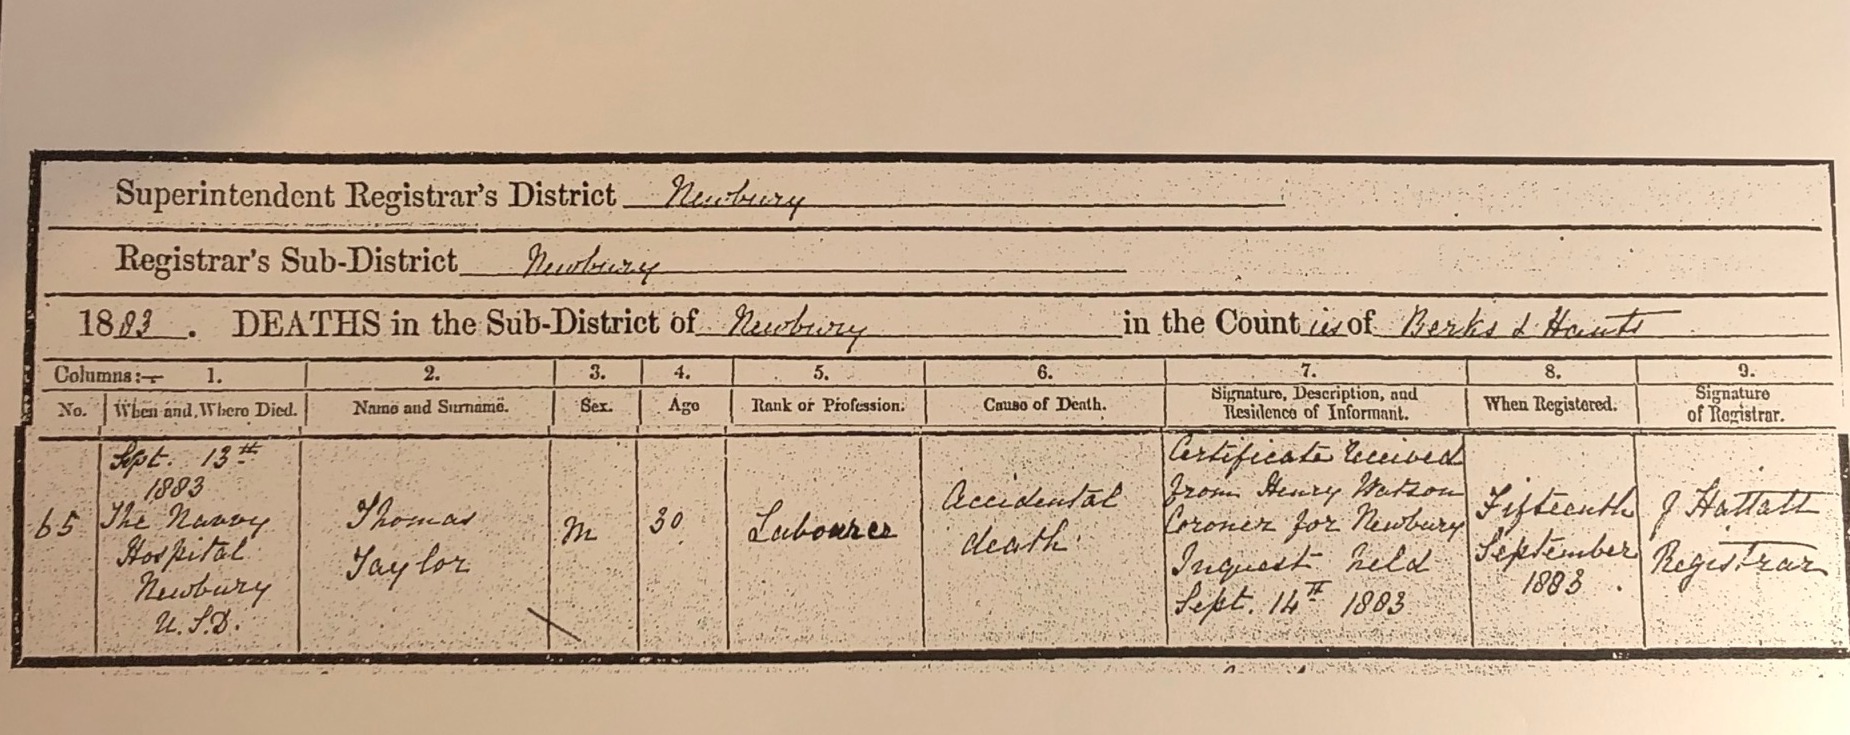 Superintendent Registrar's District Newbury
Registrar's Sub-District Newbury
1883. DEATHS in the Sub-District of Newbury in the Counties of Berks & Hants
Columns:— 1. 2. 3. 4. 5. 6. 7. 8. 9.
No. When and Where Died. Name and Surname. Sex. Age Rank or Profession. Cause of Death. Signature, Description, and Residence of Informant. When Registered. Signature of Registrar.
65
Sept. 13th
1883
The Navvy
Hospital
Newbury
U.S.D.
Thomas
Taylor
M
30
Labourer
Accidental
death
Certificate received
from Henry Watson
Coroner for Newbury
Inquest held
Sept. 14th 1883
Fifteenth
September
1883.
J Hattatt
Registrar